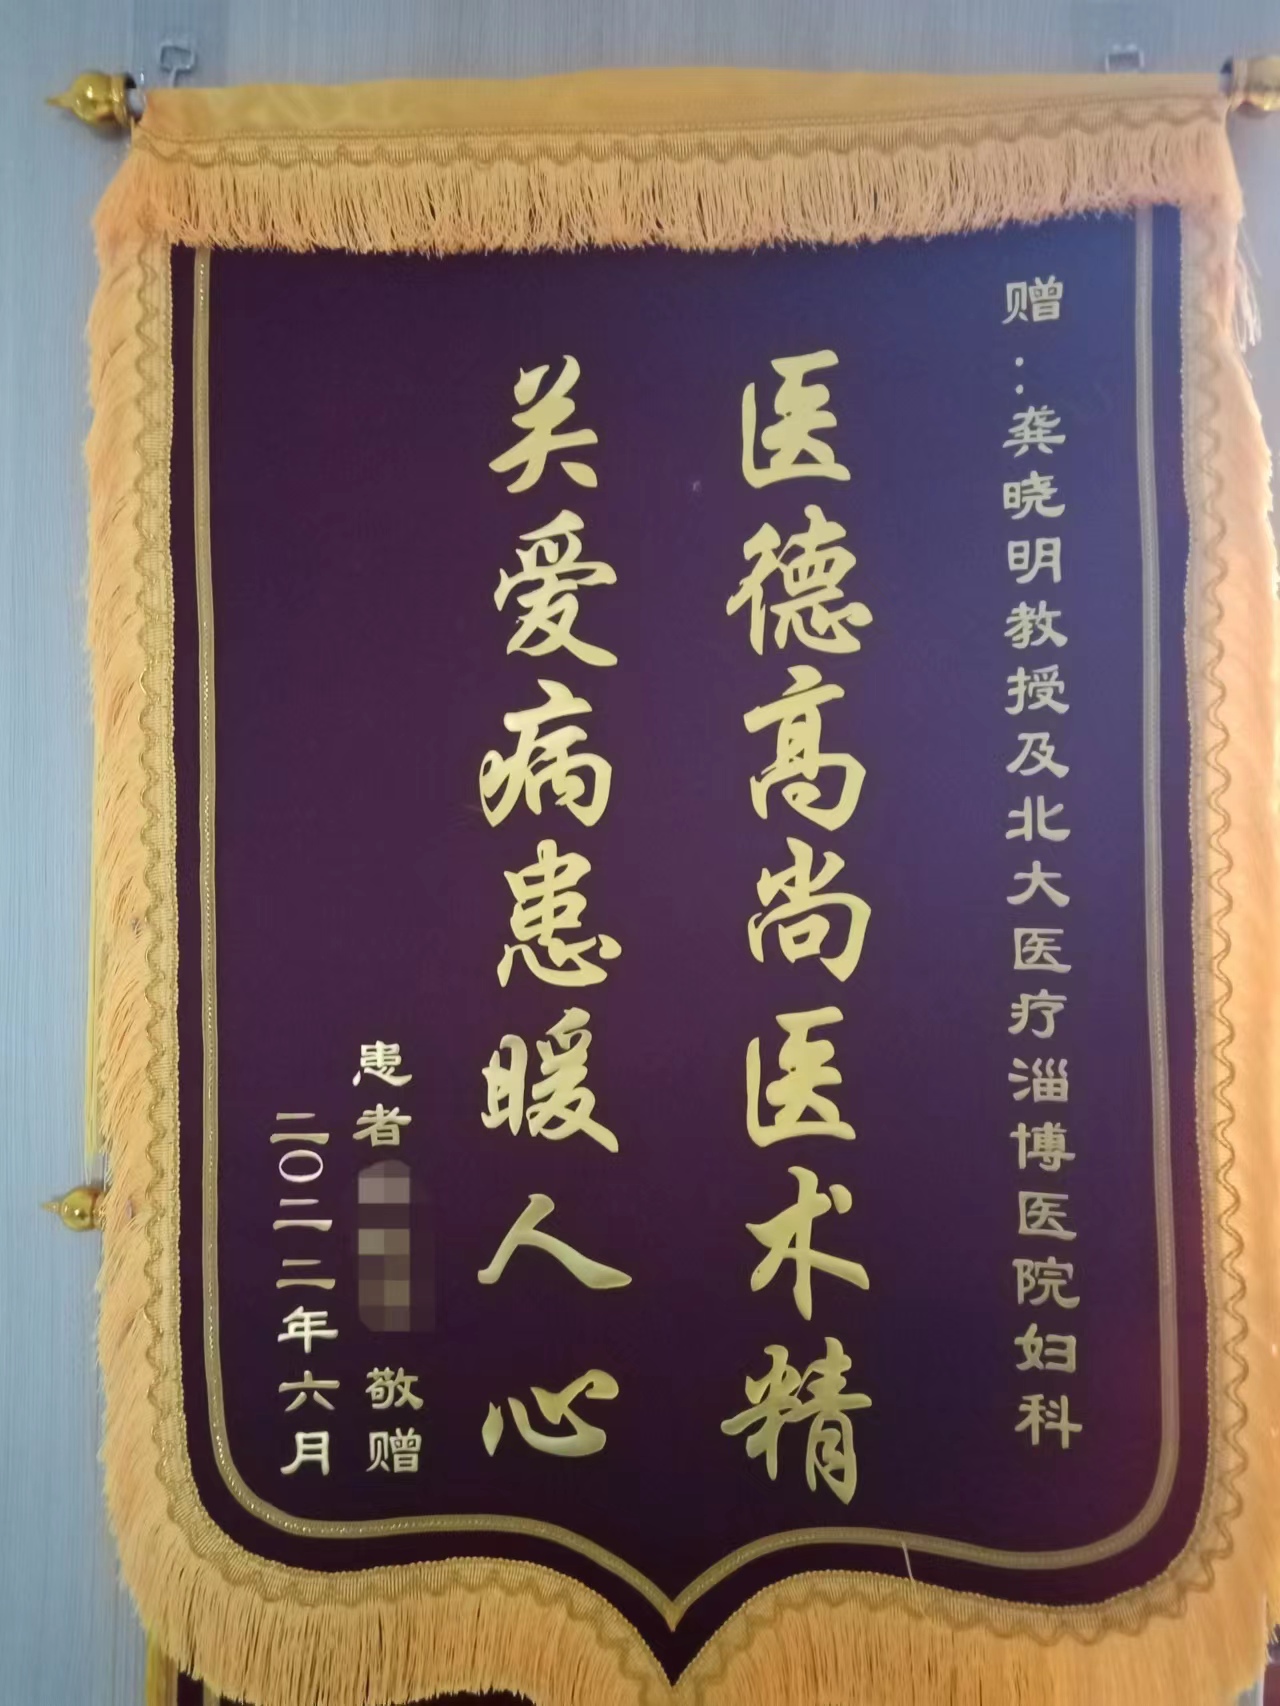 赠：龚晓明教授及北大医疗淄博医院妇科
医德高尚医术精
关爱病患暖人心
患者 敬赠
二〇二二年六月